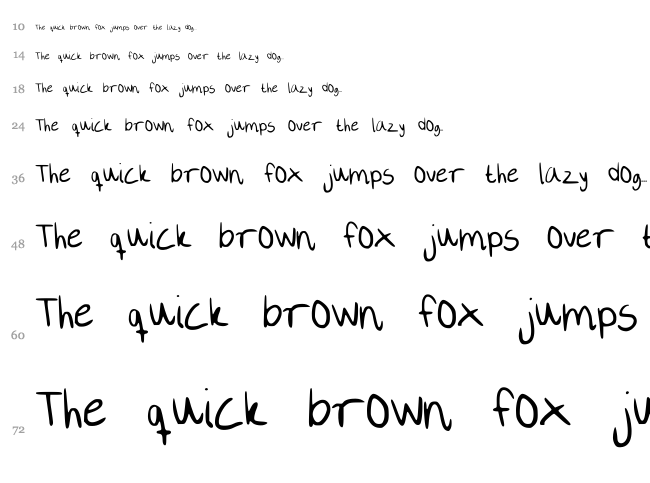 10 The quick brown fox jumps over the lazy dog.
14 The quick brown fox jumps over the lazy dog.
18 The quick brown fox jumps over the lazy dog.
24 The quick brown fox jumps over the lazy dog.
36 The quick brown fox jumps over the lazy dog.
48 The quick brown fox jumps over t
60 The quick brown fox jumps
72 The quick brown fox ju